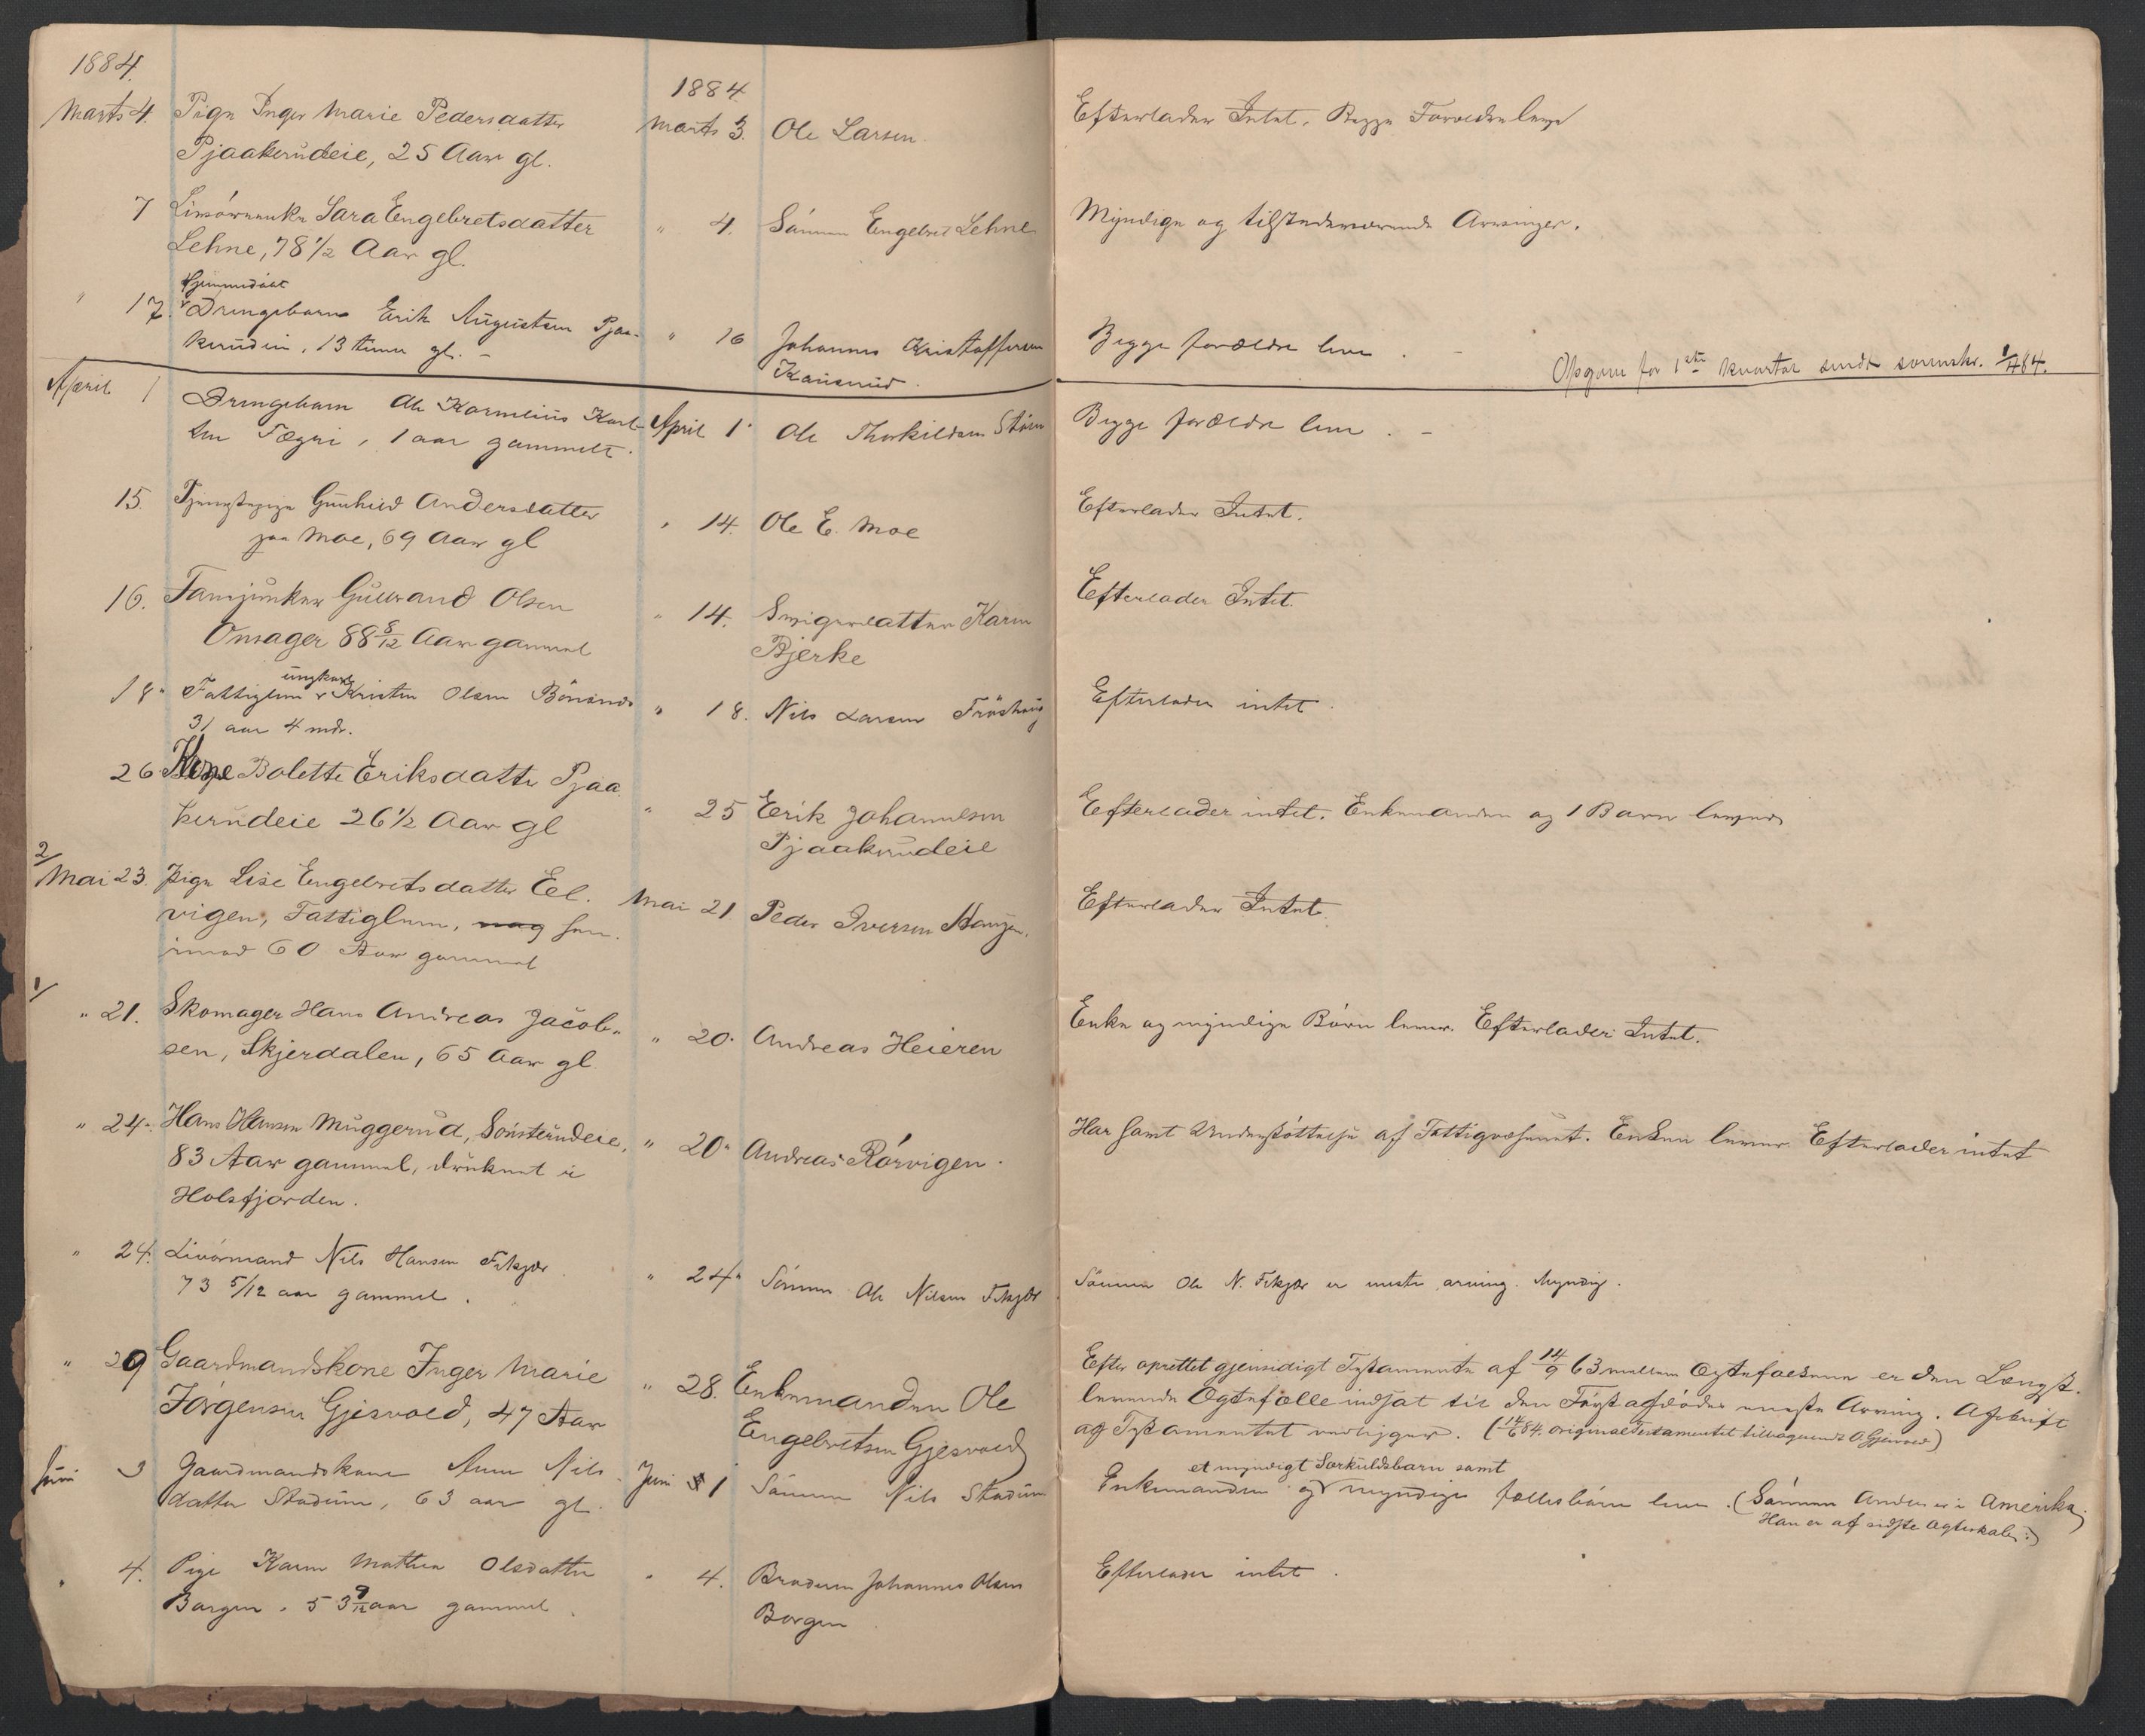 1884.
1884.
Marts 4. Pige Inger Marie Pedersdatter Marts 3. Ole Larsen. Efterlader Intet. Begge Forældre leve
Pjaakerudeie, 25 Aar gl.
7 Livørenke Sara Engebretsdatter " 4. Sønnen Engebret Lehne Myndige og tilstedeværende Arvinger.
Lehne, 78 1/2 Aar gl.
hjemmedøbt
" 17. Drengebarn Erik Augustsen Pjaa- " 16 Johannes Kristoffersen Begge forældre leve. -
kerudeie, 13 timer gl. - Opgave for 1ste kvartal sendt sorenskr. 1/4 84.
April 1 Drengebarn Ole Kornelius Karl- April 1. Ole Thorkildsen Steen Begge forældre leve. -
sen Tægri, 1 aar gammelt.
15. Tjenestepige Gunhild Andersdatter " 14. Ole E. Moe Efterlader Intet.
paa Moe, 69 Aar gl
16. Fanejunker Gulbrand Olsen " 14. Svigerdatter Karen Efterlader Intet.
Onsager 88 8/12 Aar gammel Bjerke
ungkarl
18. Fattiglem Kristen Olsen Bönsnes " 18. Nils Larsen Fröshaug Efterlader intet.
31 aar 4 mdr.
26 Kone Bolette Eriksdatter Pjaa " 25 Erik Johannesen Efterlader intet. Enkemanden og 1 Barn levende
kerudeie 26 1/2 Aar gl Pjaakerudeie
2/
Mai 23. Pige Lise Engebretsdatter Eel. Mai 21. Peder Iversen Efterlader Intet.
vigen, Fattiglem, hen.
imod 60 Aar gammel
1/
" 21. Skomager Hans Andreas Jacob- " 20. Andreas Heieren Enke og myndige Børn lever. Efterlader Intet.
sen, Skjerdalen, 65 Aar gl.
" 24. Hans Hansen Muggerud, Sønsterudeie, " 20. Andreas Rørvigen. Har havt Understøttelse af Fattigvæsenet. Enken lever. Efterlader intet
83 Aar gammel, druknet i
Holsfjorden.
" 24. Livørmand Nils Hansen Fekjær " 24. Sönnen Ole Nilsen Fekjær Sönnen Ole N. Fekjær er eneste arving. Myndig.
73 5/12 aar gammel.
" 29 Gaardmandskone Inger Marie " 28. Enkemanden Ole Efter oprettet gjensidigt Testamente af 14/9 63 mellem Ægtefolkene er den Længst.
Jørgensen Gjesvold, 47 Aar Engebretsen Gjesvold levende Ægtefælle indsat til den Først afdødes eneste Arving. Afskrift
af Testamentet vedligger. (14/6 84. originaltestamentet tilbagesendt O. Gjesvold)
et myndigt Særkuldsbarn samt
Juni 3 Gaardmandskone Anne Nils- Juni 1 Sönnen Nils Stadum Enkemanden og myndige fællesbørn leve. (Sönnen Anders er i Amerika.
datter Stadum, 63 aar gl. Han er af sidste Ægteskab.)
" 4. Pige Karen Mathea Olsdatter " 4. Broderen Johannes Olsen Efterlader intet.
Borgen. 53 9/12 aar gammel. Borgen